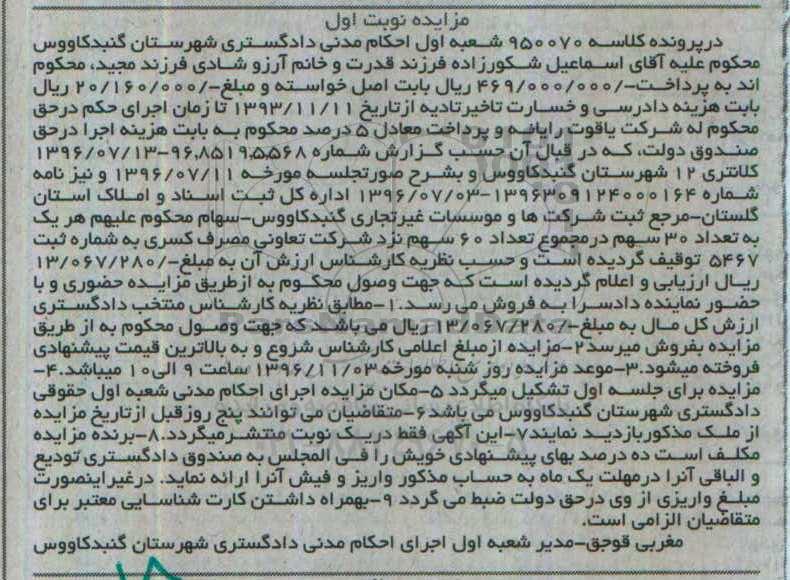 مزایده نوبت اول
درپرونده کلاسه ۹۵۰۰۷۰ شعبه اول احکام مدنی دادگستری شهرستان گنبدکاووس
محکوم علیه آقای اسماعیل شکورزاده فرزند قدرت و خانم آرزو شادی فرزند مجید، محکوم
اند به پرداخت-/۴۶۹/۰۰۰/۰۰۰ ریال بابت اصل خواسته و مبلغ-/۲۰/۱۶۰/۰۰۰ ریال
بابت هزینه دادرسی و خسارت تاخیرتادیه ازتاریخ ۱۳۹۳/۱۱/۱۱ تا زمان اجرای حکم درحق
محکوم له شرکت یاقوت رایانه و پرداخت معادل ۵ درصد محکوم به بابت هزینه اجرا درحق
صندوق دولت، که در قبال آن حسب گزارش شماره ۹۶,۸۵۱۹,۵,۵۶۸-۱۳۹۶/۰۷/۱۳
کلانتری ۱۲ شهرستان گنبدکاووس و بشرح صورتجلسه مورخه ۱۳۹۶/۰۷/۱۱ و نیز نامه
شماره ۱۳۹۶۳۰۹۱۲۴۰۰۰۱۶۴-۱۳۹۶/۰۷/۰۳ اداره کل ثبت اسناد و املاک استان
گلستان-مرجع ثبت شرکت ها و موسسات غیرتجاری گنبدکاووس-سهام محکوم علیهم هر یک
به تعداد ۳۰ سهم درمجموع تعداد ۶۰ سهم نزد شرکت تعاونی مصرف کسری به شماره ثبت
۵۴۶۷ توقیف گردیده است و حسب نظریه کارشناس ارزش آن به مبلغ-/۱۳/۰۶۷/۲۸۰
ریال ارزیابی و اعلام گردیده است که جهت وصول محکوم به ازطریق مزایده حضوری و با
حضور نماینده دادسرا به فروش می رسد.۱-مطابق نظریه کارشناس منتخب دادگستری
ارزش کل مال به مبلغ-/۱۳/۰۶۷/۲۸۰ ریال می باشد که جهت وصول محکوم به از طریق
مزایده بفروش میرسد۲-مزایده ازمبلغ اعلامی کارشناس شروع و به بالاترین قیمت پیشنهادی
فروخته میشود.۳-موعد مزایده روز شنبه مورخه ۱۳۹۶/۱۱/۰۳ ساعت ۹ الی۱۰ میباشد.۴-
مزایده برای جلسه اول تشکیل میگردد ۵-مکان مزایده اجرای احکام مدنی شعبه اول حقوقی
دادگستری شهرستان گنبدکاووس می باشد۶-متقاضیان می توانند پنج روزقبل ازتاریخ مزایده
از ملک مذکوربازدید نمایند۷-این آگهی فقط دریک نوبت منتشرمیگردد.۸-برنده مزایده
مکلف است ده درصد بهای پیشنهادی خویش را فی المجلس به صندوق دادگستری تودیع
و الباقی آنرا درمهلت یک ماه به حساب مذکور واریز و فیش آنرا ارائه نماید. درغیراینصورت
مبلغ واریزی از وی درحق دولت ضبط می گردد ۹-بهمراه داشتن کارت شناسایی معتبر برای
متقاضیان الزامی است.
مغربی قوجق-مدیر شعبه اول اجرای احکام مدنی دادگستری شهرستان گنبدکاووس